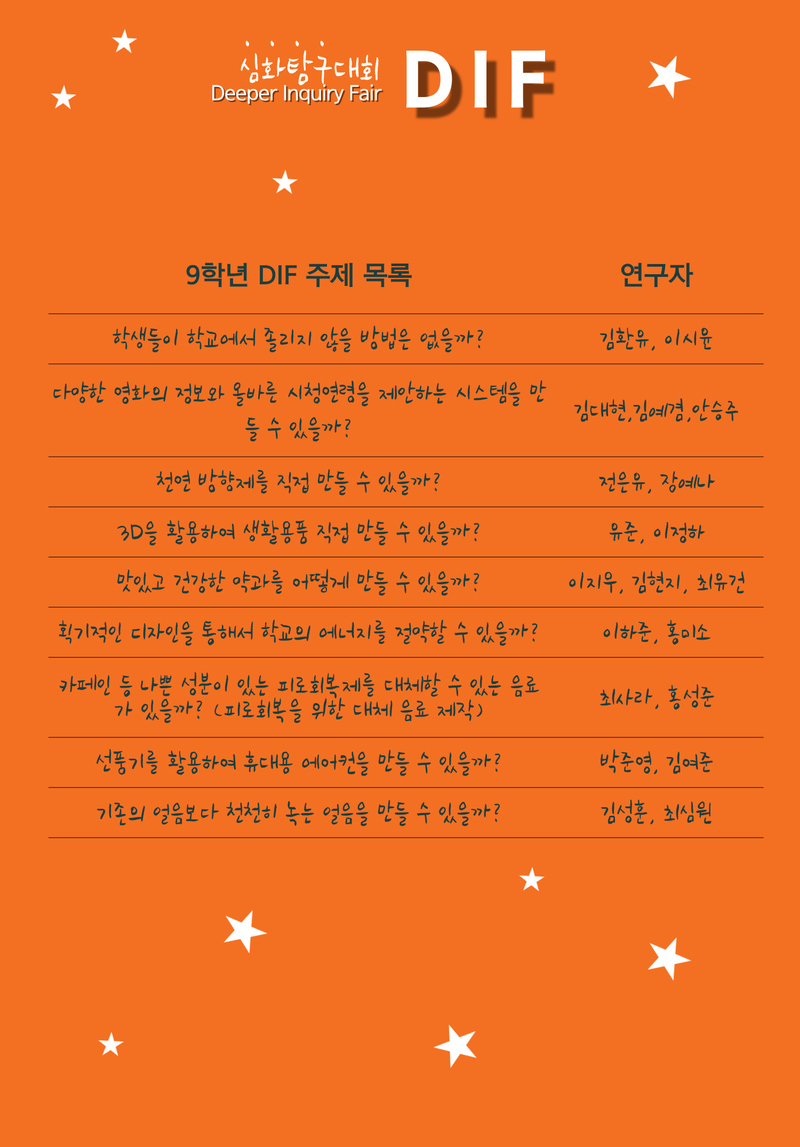 심화탐구대회
Deeper Inquiry Fair
DIF
9학년 DIF 주제 목록 연구자
학생들이 학교에서 졸리지 않을 방법은 없을까? 김환유, 이시윤
다양한 영화의 정보와 올바른 시청연령을 제안하는 시스템을 만
들 수 있을까? 김대현,김예겸,안승주
천연 방향제를 직접 만들 수 있을까? 전은유, 장예나
3D을 활용하여 생활용품 직접 만들 수 있을까? 유준, 이정하
맛있고 건강한 약과를 어떻게 만들 수 있을까? 이지우, 김현지, 최유건
획기적인 디자인을 통해서 학교의 에너지를 절약할 수 있을까? 이하준, 홍미소
카페인 등 나쁜 성분이 있는 피로회복제를 대체할 수 있는 음료
가 있을까? (피로회복을 위한 대체 음료 제작) 최사라, 홍성준
선풍기를 활용하여 휴대용 에어컨을 만들 수 있을까? 박준영, 김여준
기존의 얼음보다 천천히 녹는 얼음을 만들 수 있을까? 김성훈, 최심원